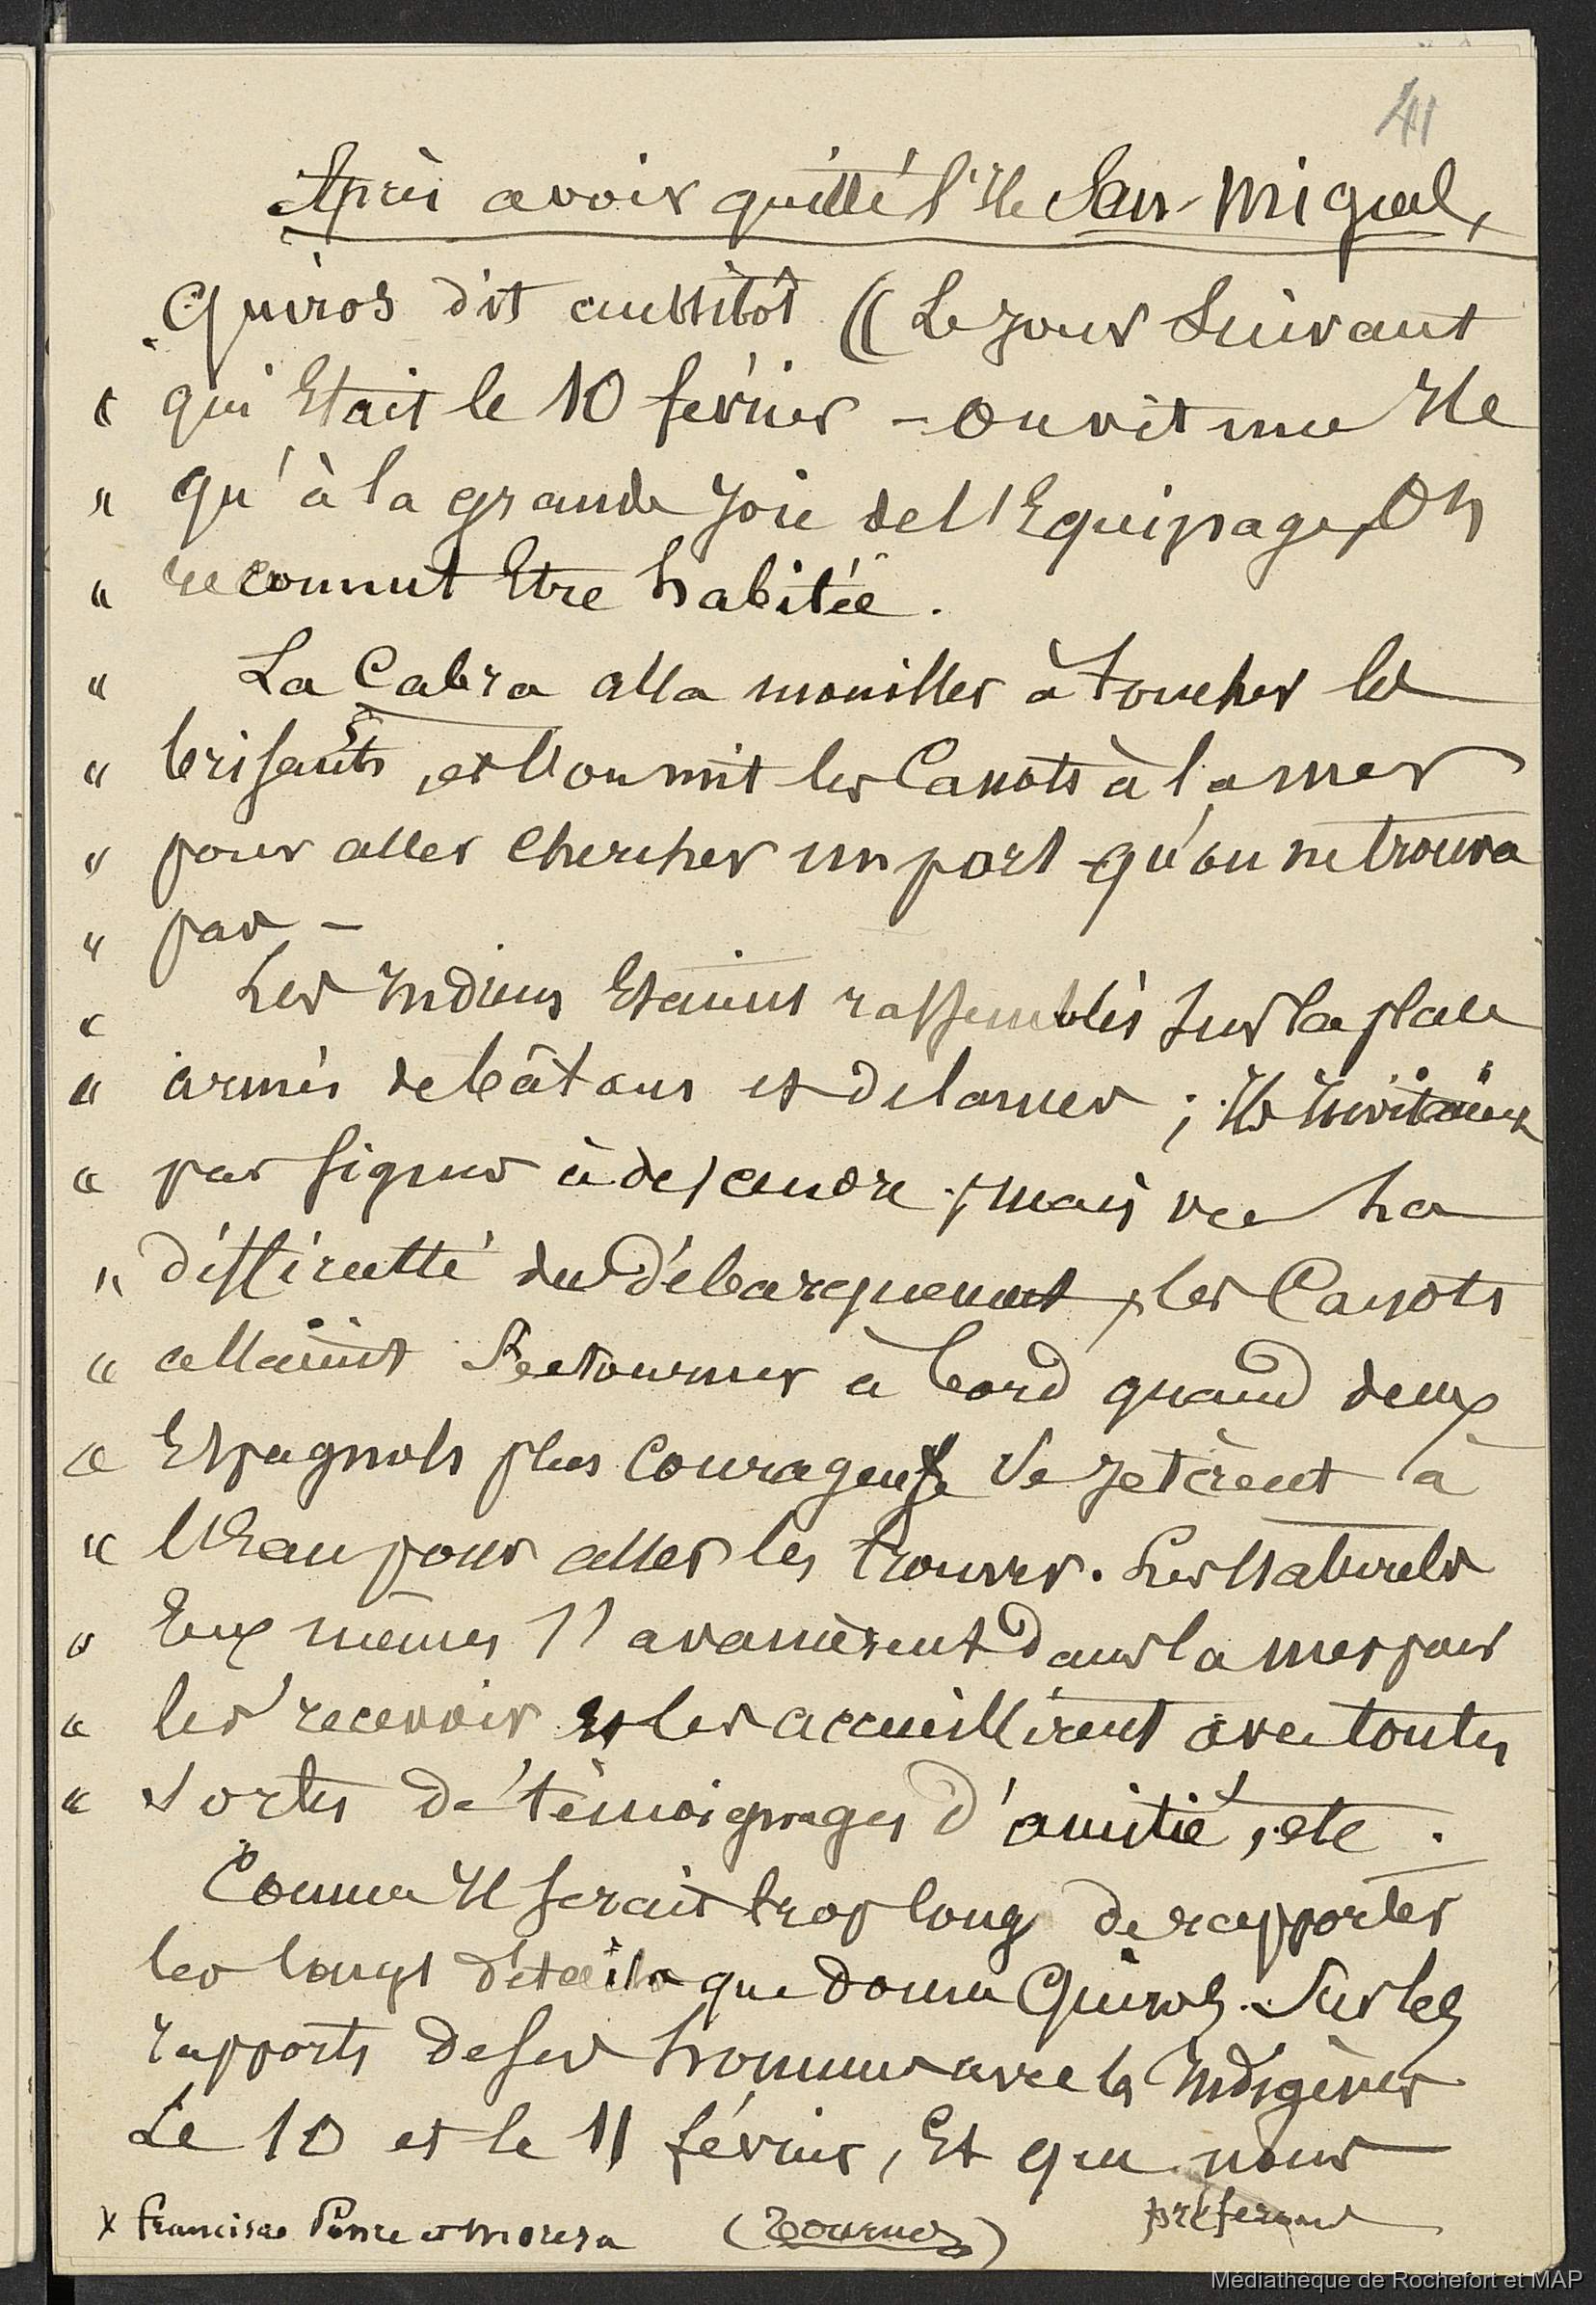 41
Après avoir quitté l'Ile San-Miguel,
Quiros dit aussitôt (( Le Jour Suivant
" qui Etait le 10 février – on vit une Ile
" qu'à la grande Joie de l'Equipage, On
" reconnut Etre habitée.
" La Cabra alla mouiller à toucher les
" brisants, et l'on mit les Canots à la mer
" pour aller chercher un port qu'on ne trouva
" pas –
" Les Indiens Etaient rassemblés sur la place
" armés de bâtons et de lances ; Ils Invitaient
" par signes à descendre, mais vu la
" difficulté du débarquement, les Canots
" allaient Retourner à bord quand deux
" Espagnols plus Courageux se jetèrent à
" l'Eau pour aller les trouver. Les Naturels
" Eux mêmes s'avancèrent dans la mer pour
" les recevoir et les accueillirent avec toutes
" sortes de témoignages d'amitié, etc.
Comme Il serait trop long de rapporter
les longs détails que donne Quiros sur les
rapports de ses hommes avec les Indigènes
Le 10 et le 11 février, Et que nous
préférons
x Francisco Ponce et Morera (Tournez)
Médiathèque de Rochefort et MAP